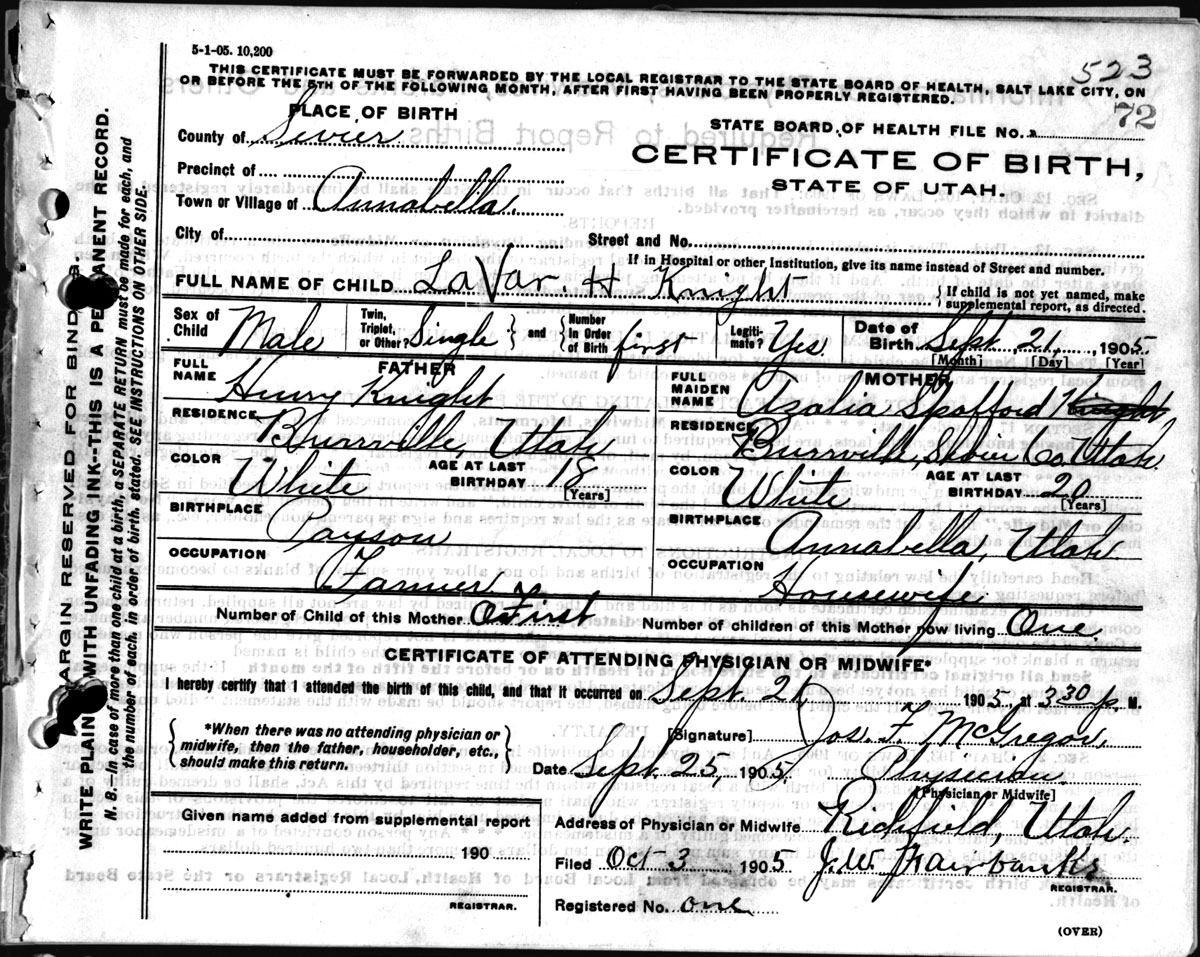 5-1-05. 10,200
523
THIS CERTIFICATE MUST BE FORWARDED BY THE LOCAL REGISTRAR TO THE STATE BOARD OF HEALTH, SALT LAKE CITY, ON
OR BEFORE THE 5TH OF THE FOLLOWING MONTH, AFTER FIRST HAVING BEEN PROPERLY REGISTERED.
PLACE OF BIRTH
STATE BOARD OF HEALTH FILE No. 72
County of Sevier
CERTIFICATE OF BIRTH,
STATE OF UTAH.
Precinct of
Town or Village of Annabella
City of
Street and No.
If in Hospital or other Institution, give its name instead of Street and number.
FULL NAME OF CHILD LaVar H Knight
{If child is not yet named, make supplemental report, as directed.
Sex of Child Male
Twin, Triplet, or Other? Single
and
Number in Order of Birth first
Legitimate? Yes.
Date of Birth Sept. 21, 1905
[Month] [Day] [Year]
FATHER
FULL NAME Henry Knight
RESIDENCE Burrville, Utah
COLOR White
AGE AT LAST BIRTHDAY 18
[Years]
BIRTHPLACE Payson
OCCUPATION Farmer
MOTHER
FULL MAIDEN NAME Azalia Spafford Knight
RESIDENCE Burrville, Co. Utah.
COLOR White
AGE AT LAST BIRTHDAY 20
[Years]
BIRTHPLACE Annabella, Utah
OCCUPATION Housewife
Number of Child of this Mother First
Number of children of this Mother now living One.
CERTIFICATE OF ATTENDING PHYSICIAN OR MIDWIFE*
I hereby certify that I attended the birth of this child, and that it occurred on Sept. 21 1905, at 3 30 p. M.
*When there was no attending physician or midwife, then the father, householder, etc., should make this return.
[Signature] Jos. F. McGregor,
Date Sept. 25, 1905. Physician
[Physician or Midwife]
Given name added from supplemental report
190
REGISTRAR.
Address of Physician or Midwife Richfield, Utah.
Filed Oct 3 1905 J.W. Fairbanks
REGISTRAR.
Registered No. one
(OVER)
MARGIN RESERVED FOR BINDING.
WRITE PLAINLY WITH UNFADING INK--THIS IS A PERMANENT RECORD.
N. B.--In case of more than one child at a birth, a SEPARATE RETURN must be made for each, and
the number of each, in order of birth, stated. SEE INSTRUCTIONS ON OTHER SIDE.